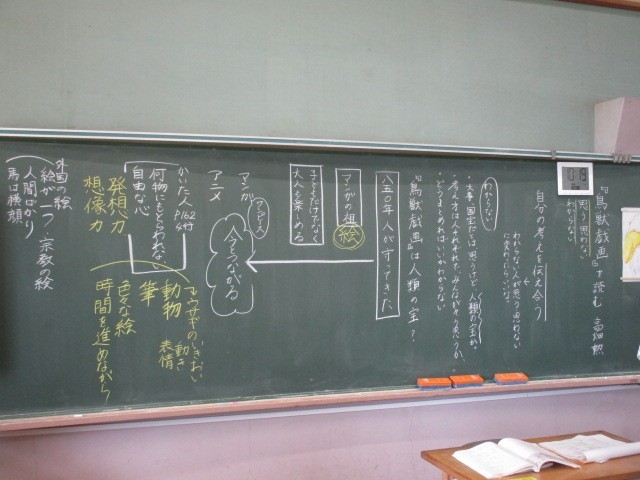 『鳥獣戯画』を読む 高畑勲
思う 思わない
わからない
自分の考えを伝え合う
わからない人が思う思わない
に変わらいいな。
わからない
・大事、国宝だとは思うけど、人類の宝か。
・考え方は人それぞれで、みんながそう思うか。
・どうまとめればいいかわからない
『鳥獣戯画』は人類の宝？
八五〇年人が守ってきた
マンガの祖
絵
子どもだけでなく
大人も楽しめる
今とつながる
マンガ
アニメ
かいた人 P162
何物にもとらわれない
自由な心
発想力
想像力
マ、ウサギのいきおい
動物 動き
表情
筆
色々な絵
時間を進めながら
外国の絵
絵が一つ・宗教の絵
人間ばかり
馬は横顔